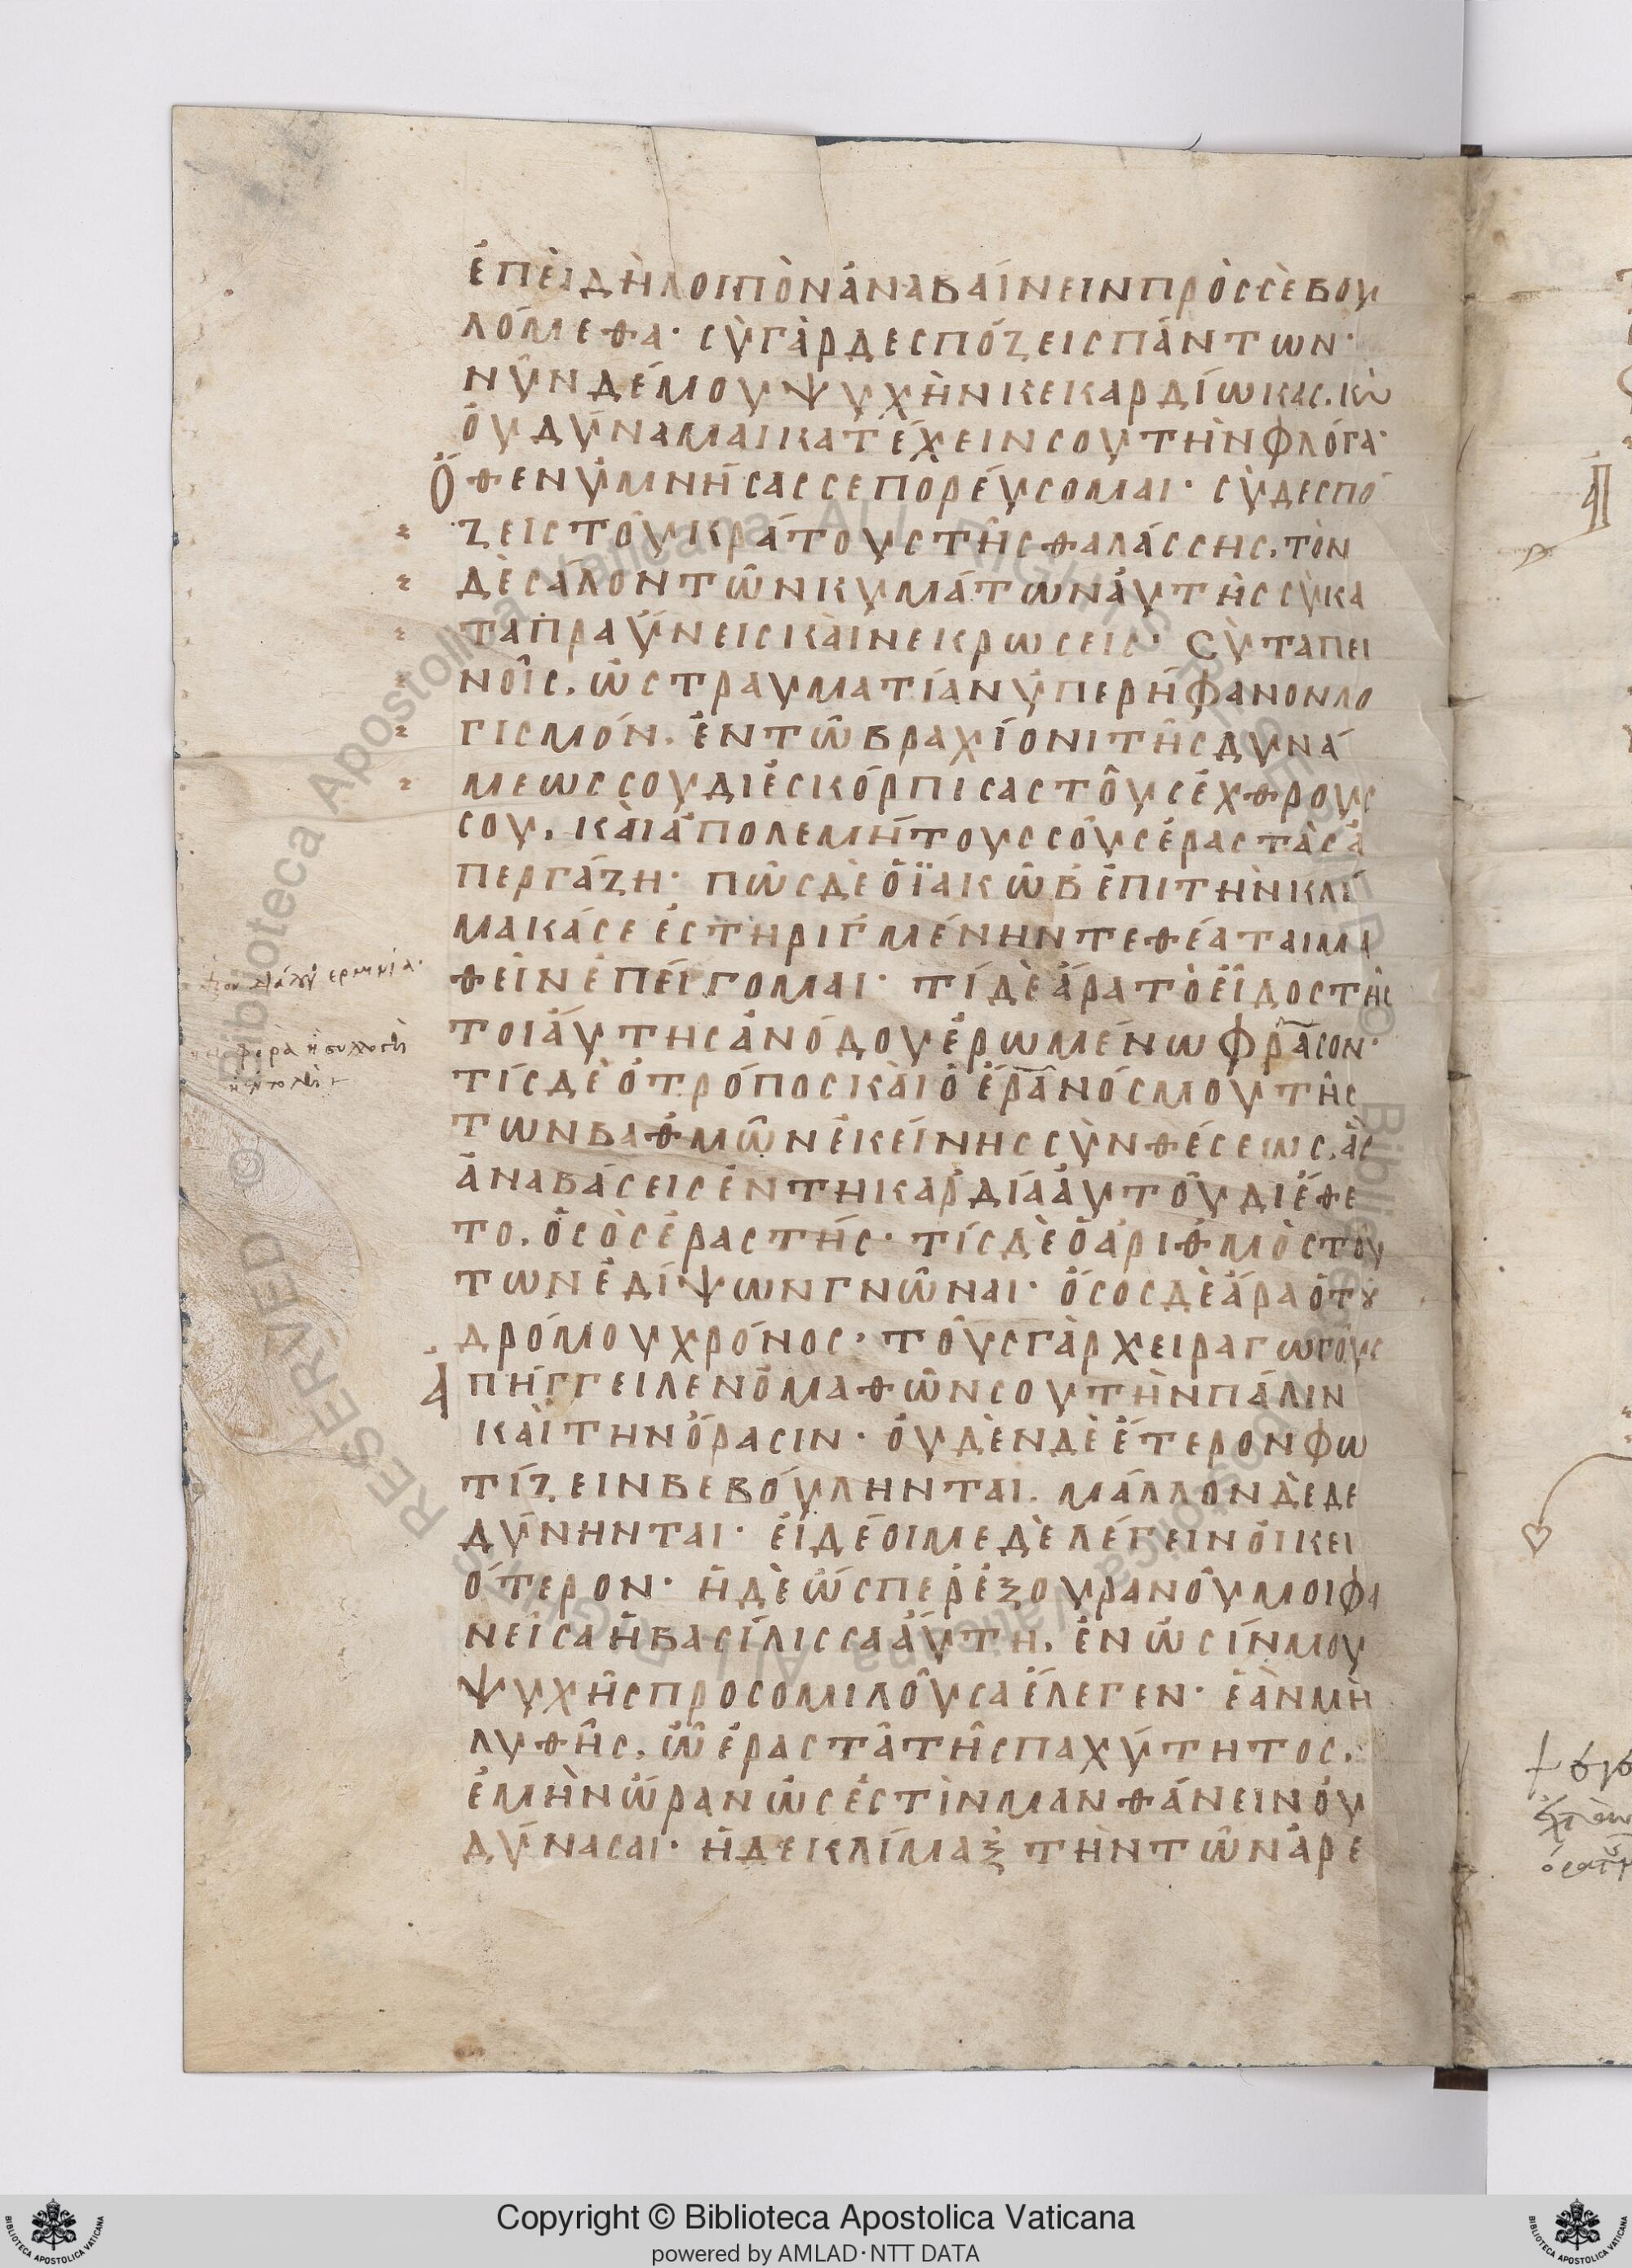 ἐπειδὴ λοιπὸν ἀναβαίνειν πρὸς σὲ βου
λόμεθα· σὺ γὰρ δεσπόζεις πάντων·
νῦν δέ μου ψυχὴν κεκαρδίωκας, κὼ
οὐ δύναμαι κατέχειν σου τὴν φλόγα·
Ὅθεν ὑμνήσας σε πορεύσομαι· σὺ δεσπό
ζεις τοῦ κράτους τῆς θαλάσσης, τὸν
δὲ σάλον τῶν κυμάτων αὐτῆς σὺ κα
ταπραΰνεις καὶ νεκρώσεις· Σὺ ταπει
νοῖς, ὡς τραυματίαν ὑπερήφανον λο
γισμόν, ἐν τῶ βραχίονι τῆς δυνά
μεώς σου διεσκόρπισας τοὺς ἐχθρούς
σου, καὶ ἀπολεμήτους σοὺς ἐραστὰς ἀ
περγάζη· πῶς δὲ ὁ ϊακὼβ ἐπὶ τὴν κλί
μακά σε ἐστηριγμένην τεθέαται μα
θεῖν ἐπείγομαι· τί δὲ ἄρα τὸ εἶδος τῆς
τοιαύτης ἀνόδου ἐρωμένω φράσον·
τίς δὲ ὁ τρόπος καὶ ὁ ἔρανός μου τῆς
τῶν βαθμῶν ἐκείνης συνθέσεως, ἃς
ἀναβάσεις ἐν τῆ καρδία αὐτοῦ διέθε
το, ὁ σὸς ἐραστής· τίς δὲ ὁ ἀριθμὸς τού
των ἐδίψων γνῶναι· ὅσος δὲ ἄρα ὁ τȣ
δρόμου χρόνος· τοὺς γὰρ χειραγωγοὺς
ἀπήγγειλεν ὁ μαθών σου τὴν πάλιν
καὶ τὴν ὅρασιν· οὐδὲν δὲ ἕτερον φω
τίζειν βεβούληνται, μᾶλλον δὲ δε
δύνηνται· εἰ δέοι με δὲ λέγειν οἰκει
ότερον· ἡ δὲ ὥσπερ ἐξ οὐρανοῦ μοι φα
νεῖσα ἡ βασίλισσα αὕτη, ἐν ὠσίν μου
ψυχῆς προσομιλοῦσα ἔλεγεν· ἐὰν μὴ
λυθῆς, ὦ ἐραστὰ τῆς παχύτητος,
ἐμὴν ὥραν ὡς ἐστὶν μανθάνειν οὐ
δύνασαι· ἡ δὲ κλίμαξ τὴν τῶν ἀρε